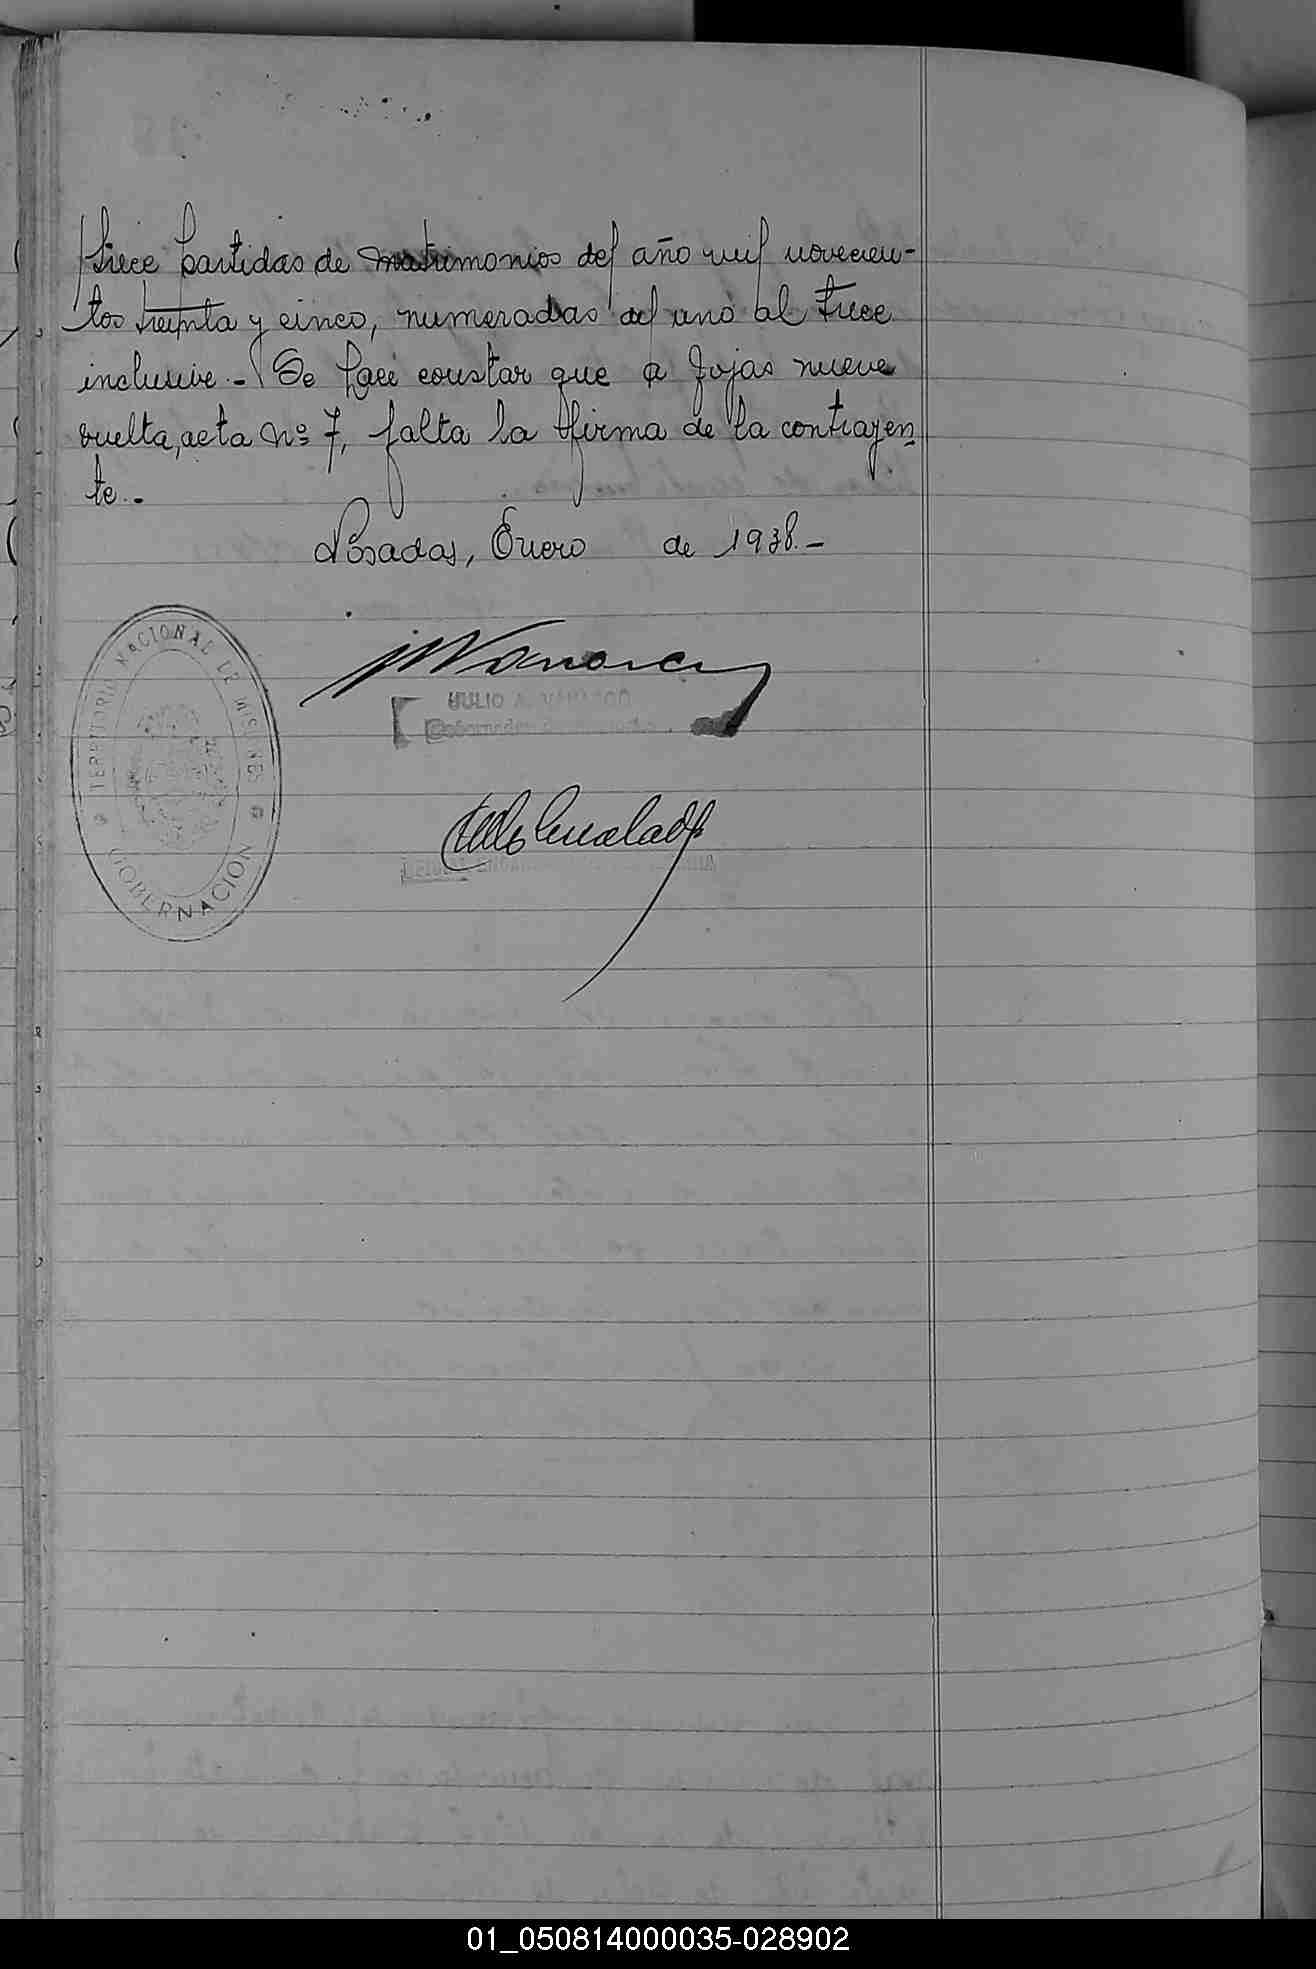 trece partidas de matrimonios del año mil novecien-
tos treinta y cinco, numeradas del uno al trece
inclusive.- Se hace constar que a fojas nueve
vuelta, acta nº 7, falta la firma de la contrayen-
te.-
Posadas, Enero de 1938.-
TERRITORIO NACIONAL DE MISIONES
GOBERNACION
JULIO A. VANASCO
Gobernador
01_050814000035-028902